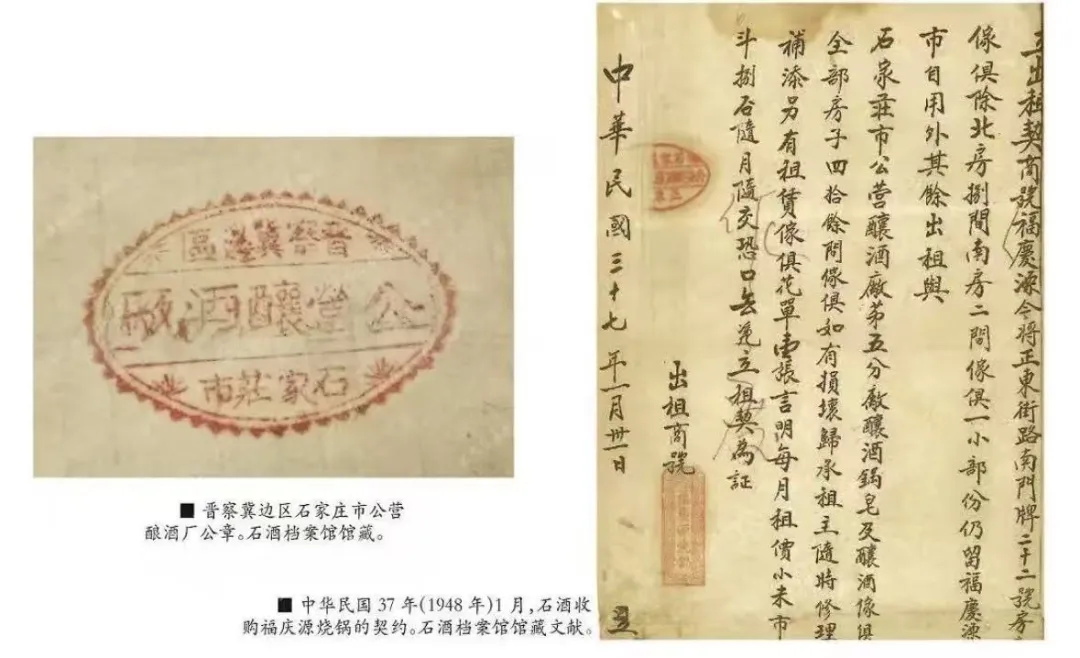 晋察冀邊區
公營釀酒廠
石家莊市
■ 晋察冀边区石家庄市公营
酿酒厂公章。石酒档案馆馆藏。
■ 中华民国 37 年(1948 年)1 月,石酒收
购福庆源烧锅的契约。石酒档案馆馆藏文献。
立出租契商號福慶源今將正東街路南門牌二十二號房
傢俱除北房捌間南房二間傢俱一小部份仍留福慶源
市自用外其餘出租與
石家莊市公营釀酒廠第五分廠釀酒鍋皂及釀酒傢俱
全部房子四拾餘間傢俱如有損壞歸承租主隨時修理
補添另有租賃傢俱花單壹張言明每月租價小米市
斗捌石隨月隨交恐口無凭立租契為証
出租商號
中華民國三十七年一月卅一日 立